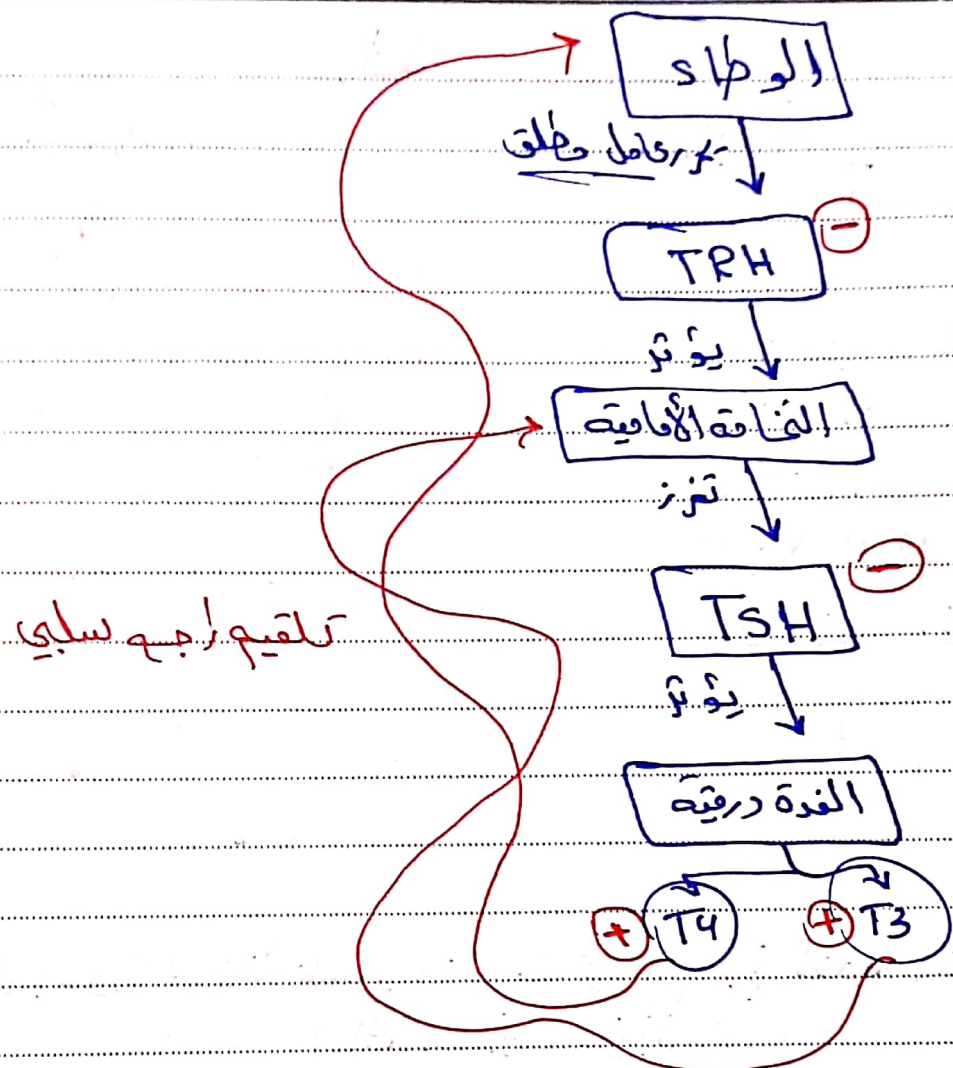 الوطاء
عامل مطلق
TRH
-
يؤثر
النخامة الأمامية
تفرز
TSH
-
تلقيم راجع سلبي
يؤثر
الغدة درقية
T3
+
T4
+